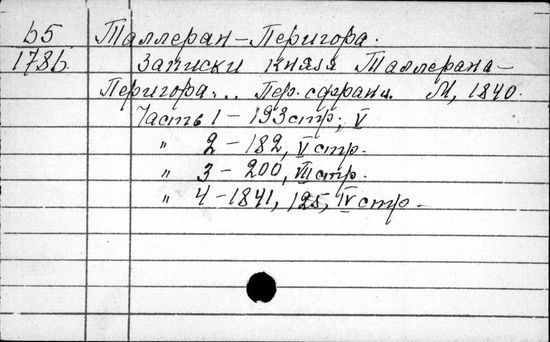 б5 Таллеран-Перигора.
1786. Записки князя Таллерана-
Перигора... Пер. с франц. М, 1840.
Часть 1 - 193 стр., V
" 2 - 182, V стр.
" 3 - 200, VII стр.
" 4 - 1841, 125, IV стр.